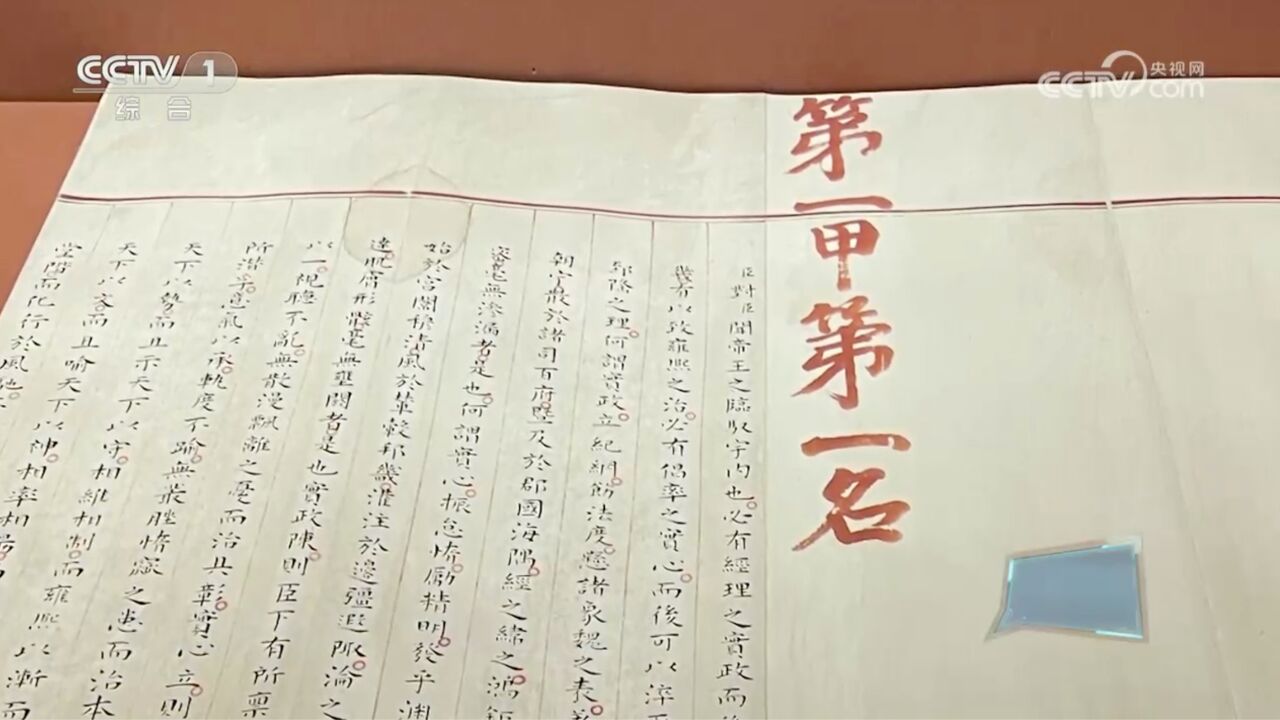 CCTV 1
综合
央视网
CCTV.com
第一甲第一名
臣對臣聞帝王之臨馭宇内也必有經理之實政而後
幾有以致雍熙之治必有倡率之實心而後可以淬
郅隆之理何謂實政立紀綱飭法度懸諸象魏之表著
朝宁散於諸司百府暨及於郡國海隅經之緯之鴻鉅
毫無滲漏者是也何謂實心振怠惰勵精明發乎淵
始於宫闈穆清風於輦轂邦畿灌注於邊疆遐陬淪之
達肌膚形骸毫無壅閼者是也實政陳則臣下有所禀
以一視聽不亂無散漫飄離之憂而治具彰實心立則
所潜孚意氣以承軌度不踰無叢脞惰窳之患而治本
天下以勢而且示天下以守相維相制而雍熙以漸而
天下以容而且喻天下以神相率相
堂階而化行於風